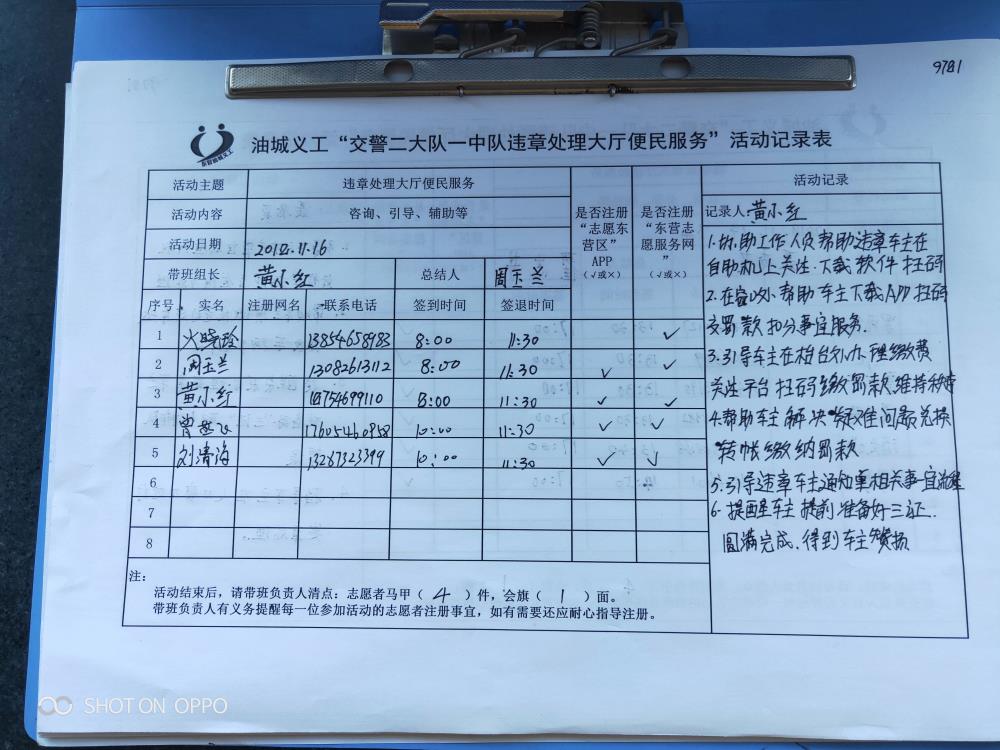 9781
东营油城义工
油城义工“交警二大队一中队违章处理大厅便民服务”活动记录表
活动主题 违章处理大厅便民服务
活动内容 咨询、引导、辅助等
活动日期 2018.11.16
带班组长 黄小红 总结人 周玉兰
是否注册“志愿东营区”APP（√或×）
是否注册“东营志愿服务网”（√或×）
序号 实名 注册网名 联系电话 签到时间 签退时间
1 火晓玲 13854658983 8:00 11:30 √
2 周玉兰 13082613112 8:00 11:30 √ √
3 黄小红 8:00 11:30 √ √
4 曾 17605460958 10:00 11:30 √ √
5 刘清海 13287323399 10:00 11:30 √ √
6
7
8
注：
活动结束后，请带班负责人清点：志愿者马甲（ 4 ）件，会旗（ 1 ）面。
带班负责人有义务提醒每一位参加活动的志愿者注册事宜，如有需要还应耐心指导注册。
活动记录
记录人 黄小红
1.协助工作人员帮助违章车主在
自助机上关注.下载软件扫码
2.在窗口 帮助车主下载APP扫码
交罚款扣分事宜服务.
3.引导车主在柜台 办理缴费
关注平台扫码缴罚款维持秩序
4.帮助车主解决疑难问题兑换
转帐缴纳罚款
5.引导违章车主通知单相关事宜流程
6.提醒车主提前准备好三证.
圆满完成.得到车主赞扬
SHOT ON OPPO